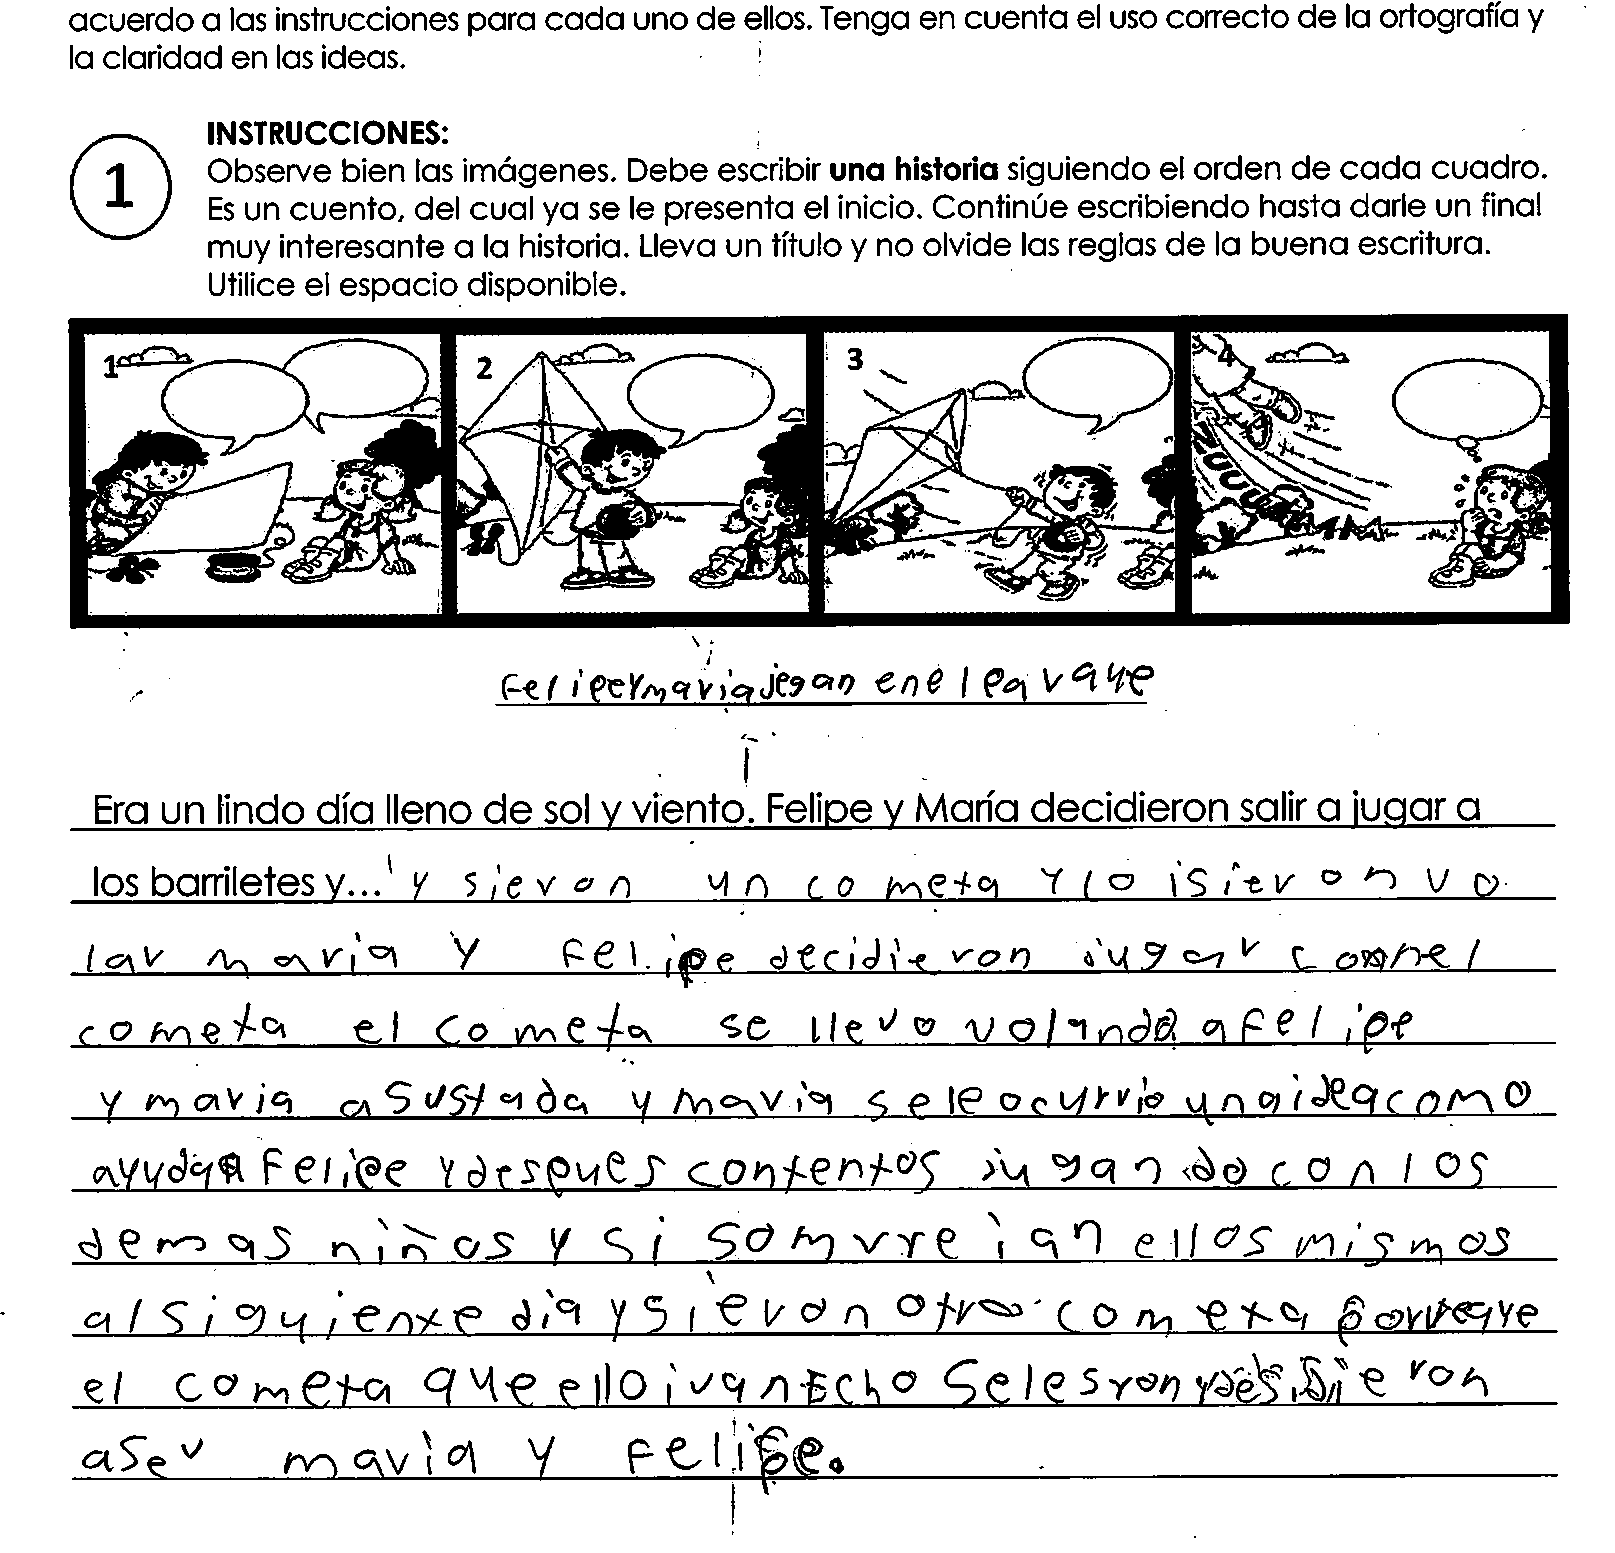 acuerdo a las instrucciones para cada uno de ellos. Tenga en cuenta el uso correcto de la ortografía y
la claridad en las ideas.
1
INSTRUCCIONES:
Observe bien las imágenes. Debe escribir una historia siguiendo el orden de cada cuadro.
Es un cuento, del cual ya se le presenta el inicio. Continúe escribiendo hasta darle un final
muy interesante a la historia. Lleva un título y no olvide las reglas de la buena escritura.
Utilice el espacio disponible.
1 2 3 4
Felipe y maria jegan en el paraque
Era un lindo día lleno de sol y viento. Felipe y María decidieron salir a jugar a
los barriletes y... y sieron un cometa y lo isieron vo
lar maria y Felipe decidieron jugar con el
cometa el cometa se llevo volando a felipe
y maria asustada y maria se le ocurrio una idea como
ayudar a Felipe y despues contentos jugando con los
demas niños y si somvreian ellos mismos
al siguiente dia y sieron otro cometa
el cometa que ello ivan Echo Se les ron y desidieron
aser maria y felipe.